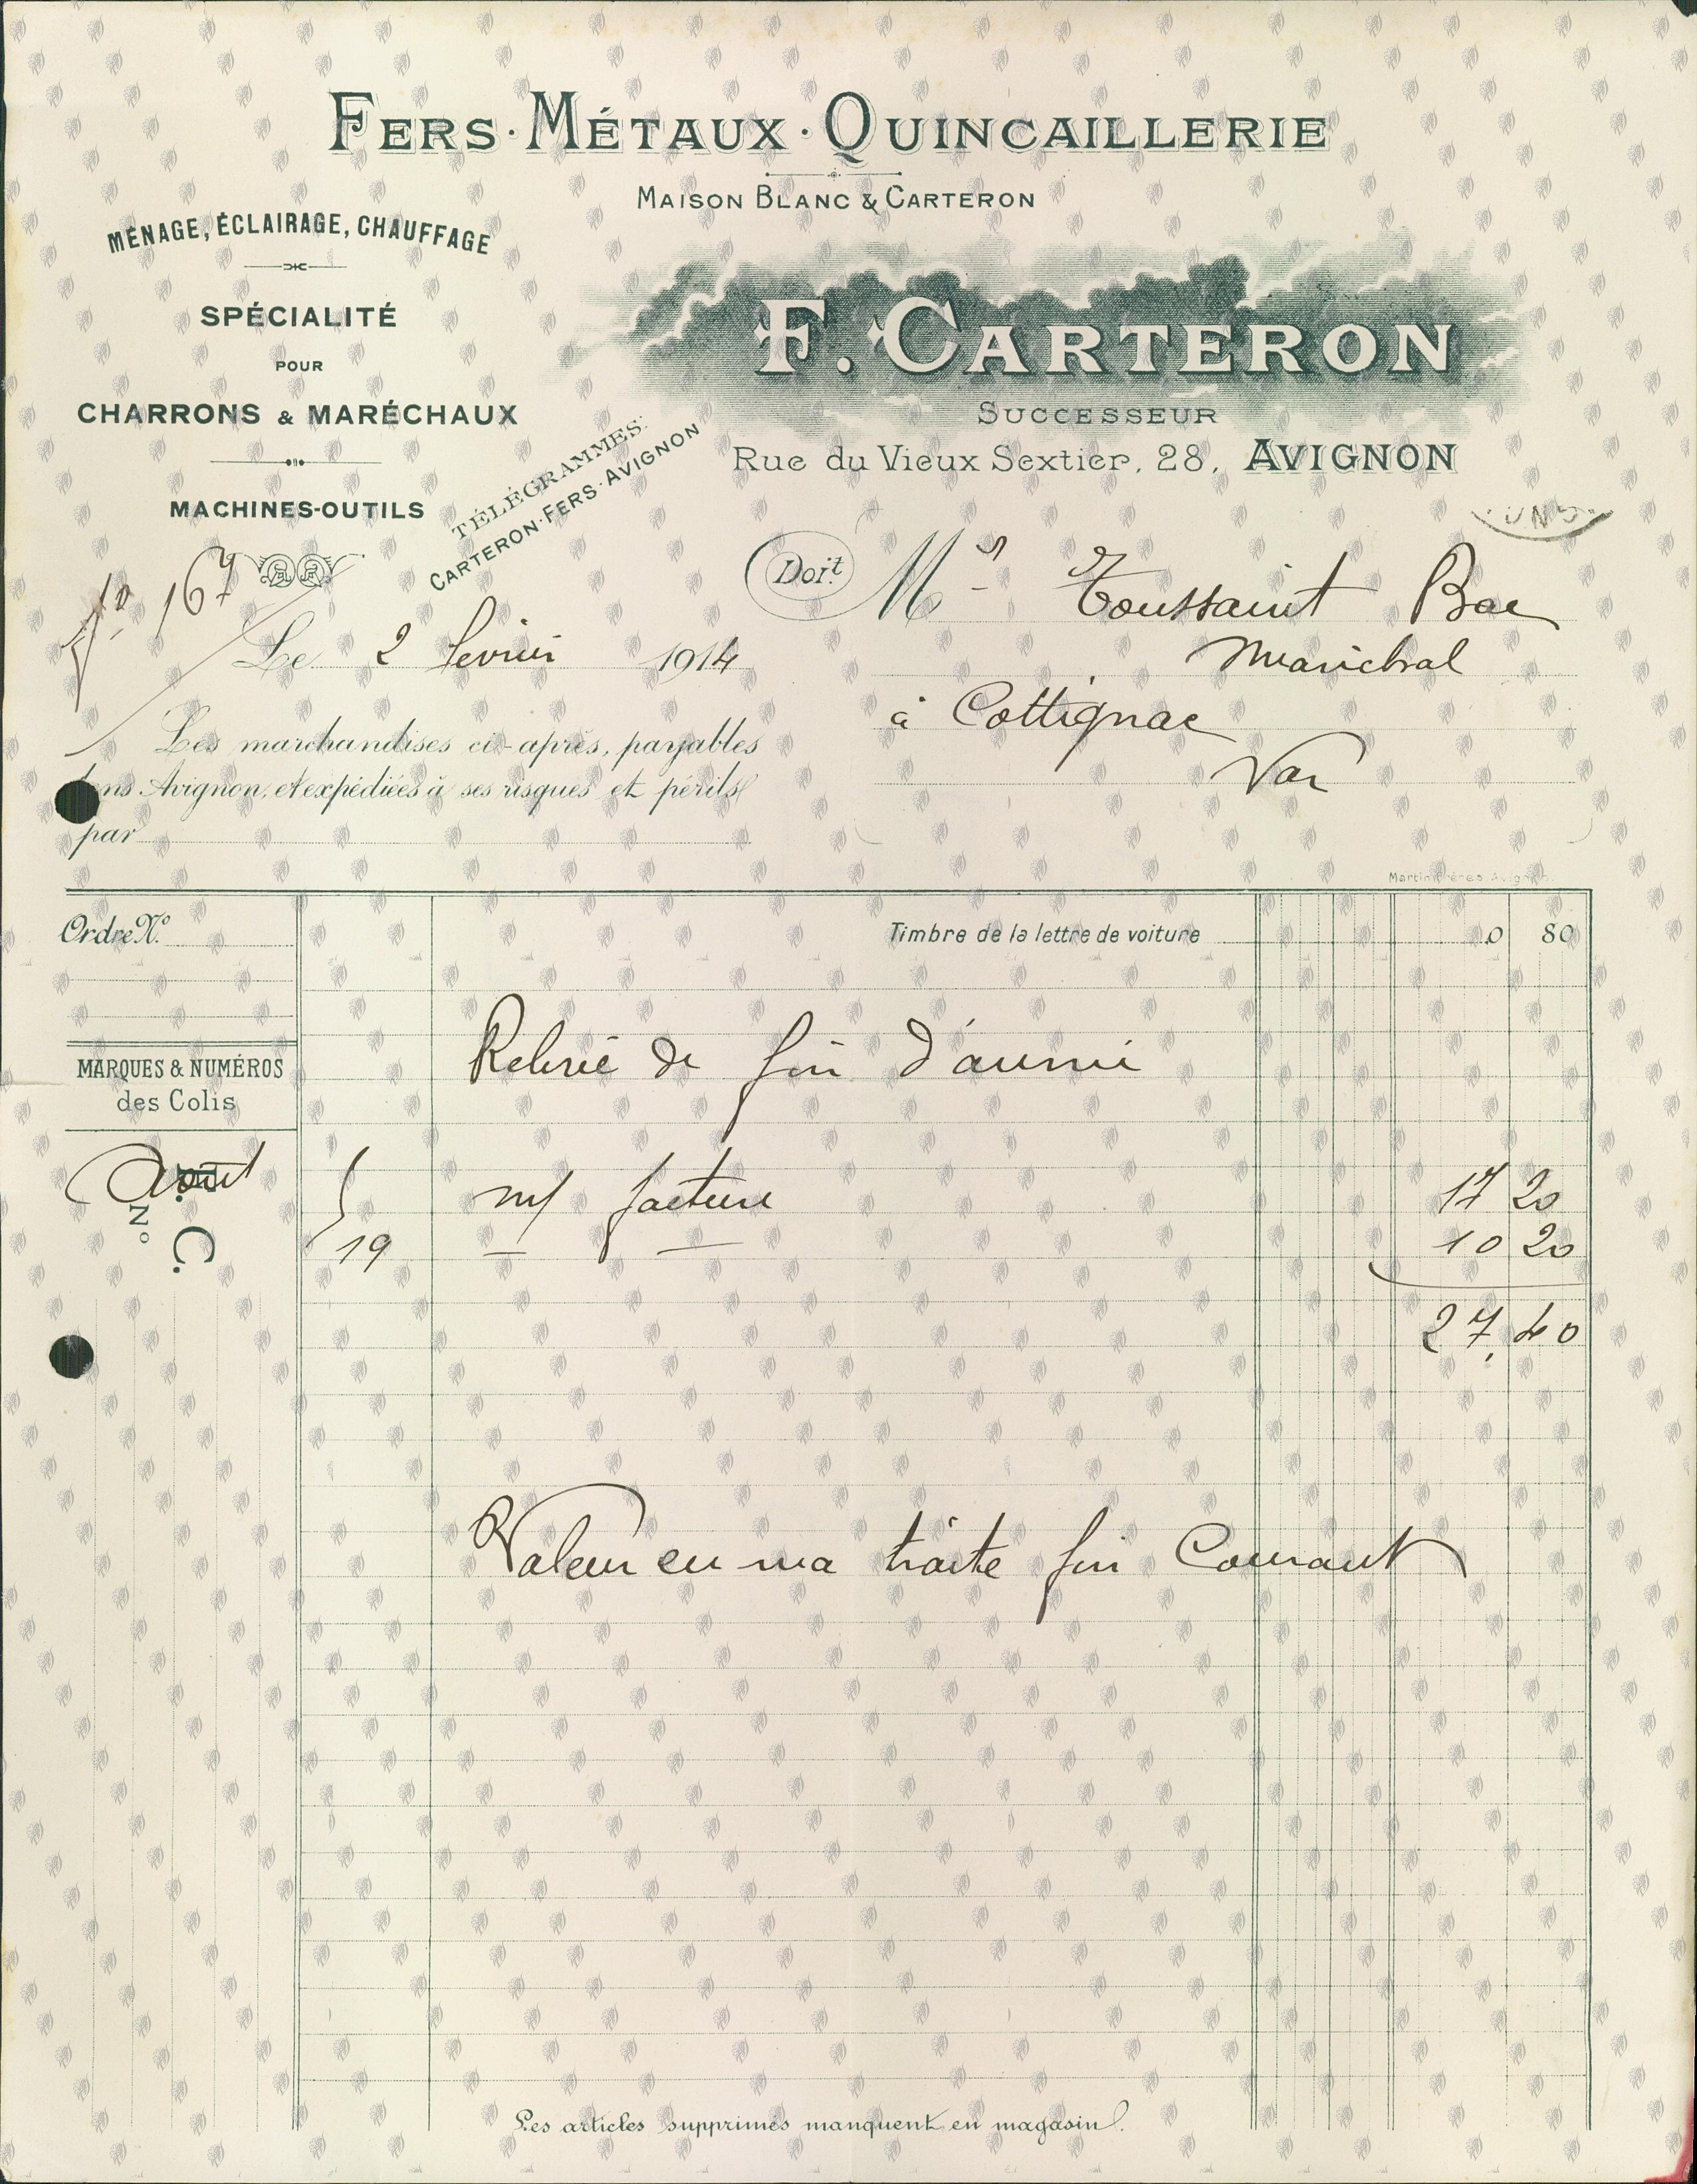 FERS · MÉTAUX · QUINCAILLERIE
MAISON BLANC & CARTERON
MÉNAGE, ÉCLAIRAGE, CHAUFFAGE
SPÉCIALITÉ
POUR
CHARRONS & MARÉCHAUX
MACHINES-OUTILS
TÉLÉGRAMMES:
CARTERON·FERS·AVIGNON
F. CARTERON
SUCCESSEUR
Rue du Vieux Sextier, 28, AVIGNON
fo 167
Doit Mr Toussaint Bac
Maréchal
Le 2 fevrier 1914
à Cottignac
Var
Les marchandises ci-après, payables
dans Avignon, et expédiées à ses risques et périls
par
Martin Frères Avignon
Ordre No.
Timbre de la lettre de voiture 0 80
Relevé de fin d'année
MARQUES & NUMÉROS
des Colis
Août 5 n/ facture 17 20
F. C.
No
19 — — 10 20
27,40
Valeur en ma traite fin Courant
Les articles supprimés manquent en magasin.